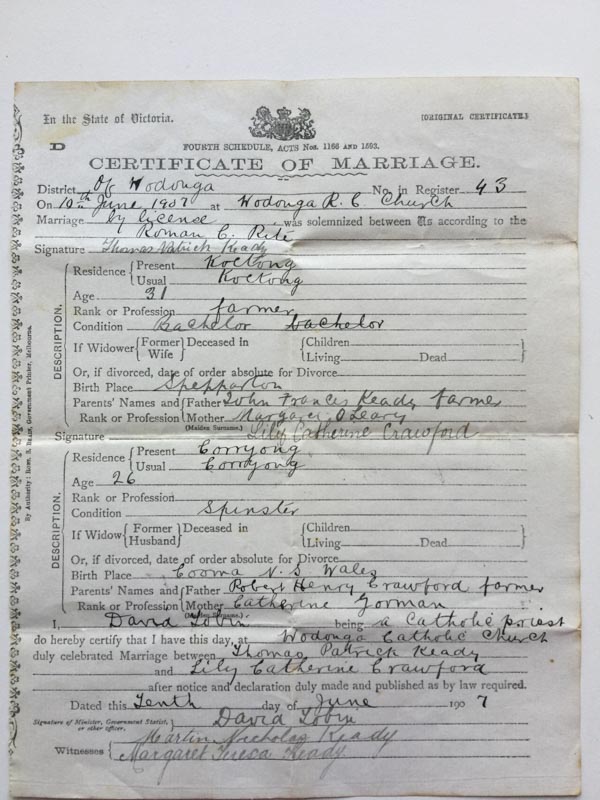 In the State of Victoria. [ORIGINAL CERTIFICATE.]
D
FOURTH SCHEDULE, ACTS Nos. 1166 AND 1503.
CERTIFICATE OF MARRIAGE.
District Of Wodonga No. in Register 43
On 10th June 1907 at Wodonga R. C Church
Marriage by licence was solemnized between Us according to the
Roman C. Rite
Signature Thomas Patrick Keady
DESCRIPTION.
Residence Present Koetong
Usual Koetong
Age 31
Rank or Profession farmer
Condition Bachelor bachelor
If Widower Former Wife Deceased in Children Living Dead
Or, if divorced, date of order absolute for Divorce
Birth Place Shepparton
Parents' Names and Father John Francis Keady farmer
Rank or Profession Mother Margaret O'Leary
(Maiden Surname.)
Signature Lily Catherine Crawford
DESCRIPTION.
Residence Present Corryong
Usual Corryong
Age 26
Rank or Profession
Condition Spinster
If Widow Former Husband Deceased in Children Living Dead
Or, if divorced, date of order absolute for Divorce
Birth Place Cooma N. S Wales
Parents' Names and Father Robert Henry Crawford farmer
Rank or Profession Mother Catherine Gorman
(Maiden Surname.)
I, David Tobin being a Catholic priest
do hereby certify that I have this day, at Wodonga Catholic Church
duly celebrated Marriage between Thomas Patrick Keady
and Lily Catherine Crawford
after notice and declaration duly made and published as by law required.
Dated this Tenth day of June 1907
Signature of Minister, Government Statist, or other officer. David Tobin
Witnesses Martin Nicholas Keady
Margaret Keady
By Authority: Government Printer, Melbourne.